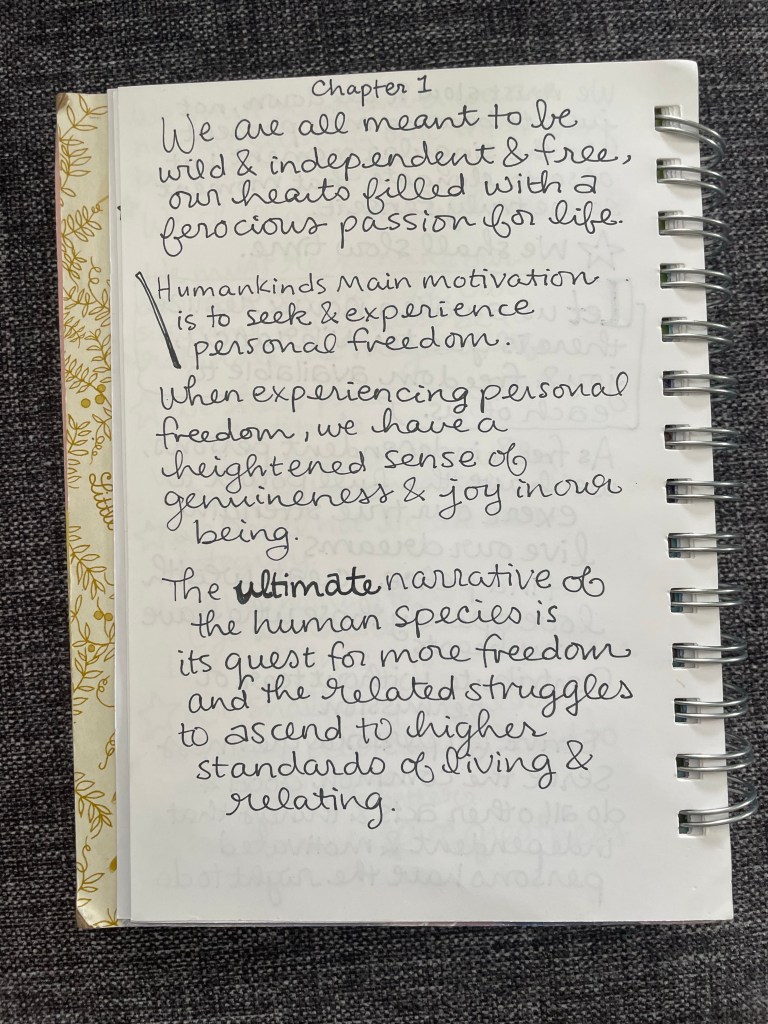 Chapter 1
We are all meant to be
wild & independent & free,
our hearts filled with a
ferocious passion for life.
Humankinds Main motivation
is to seek & experience
personal freedom.
When experiencing personal
freedom, we have a
heightened sense of
genuineness & joy in our
being.
The ultimate narrative of
the human species is
its quest for more freedom
and the related struggles
to ascend to higher
standards of living &
relating.